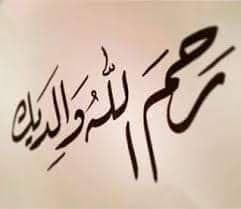 رَحِمَ اللّٰهُ وَالِدِيكَ